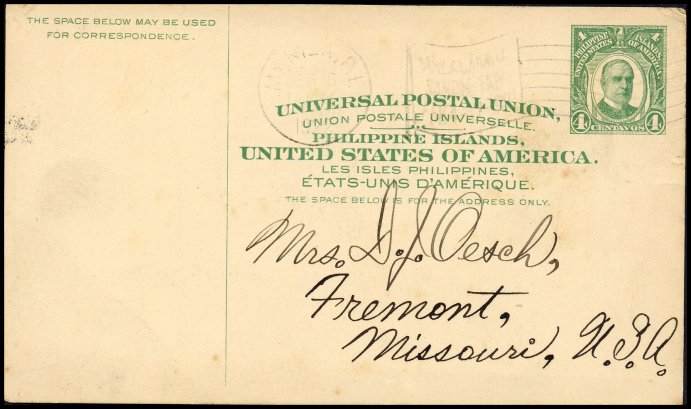 THE SPACE BELOW MAY BE USED
FOR CORRESPONDENCE.
PHILIPPINE ISLANDS OF
UNITED STATES OF AMERICA
4 CENTAVOS 4
UNIVERSAL POSTAL UNION,
UNION POSTALE UNIVERSELLE.
PHILIPPINE ISLANDS,
UNITED STATES OF AMERICA.
LES ISLES PHILIPPINES,
ÉTATS-UNIS D'AMÉRIQUE.
THE SPACE BELOW IS FOR THE ADDRESS ONLY.
Mrs. D. J. Oesch,
Fremont,
Missouri, U.S.A.